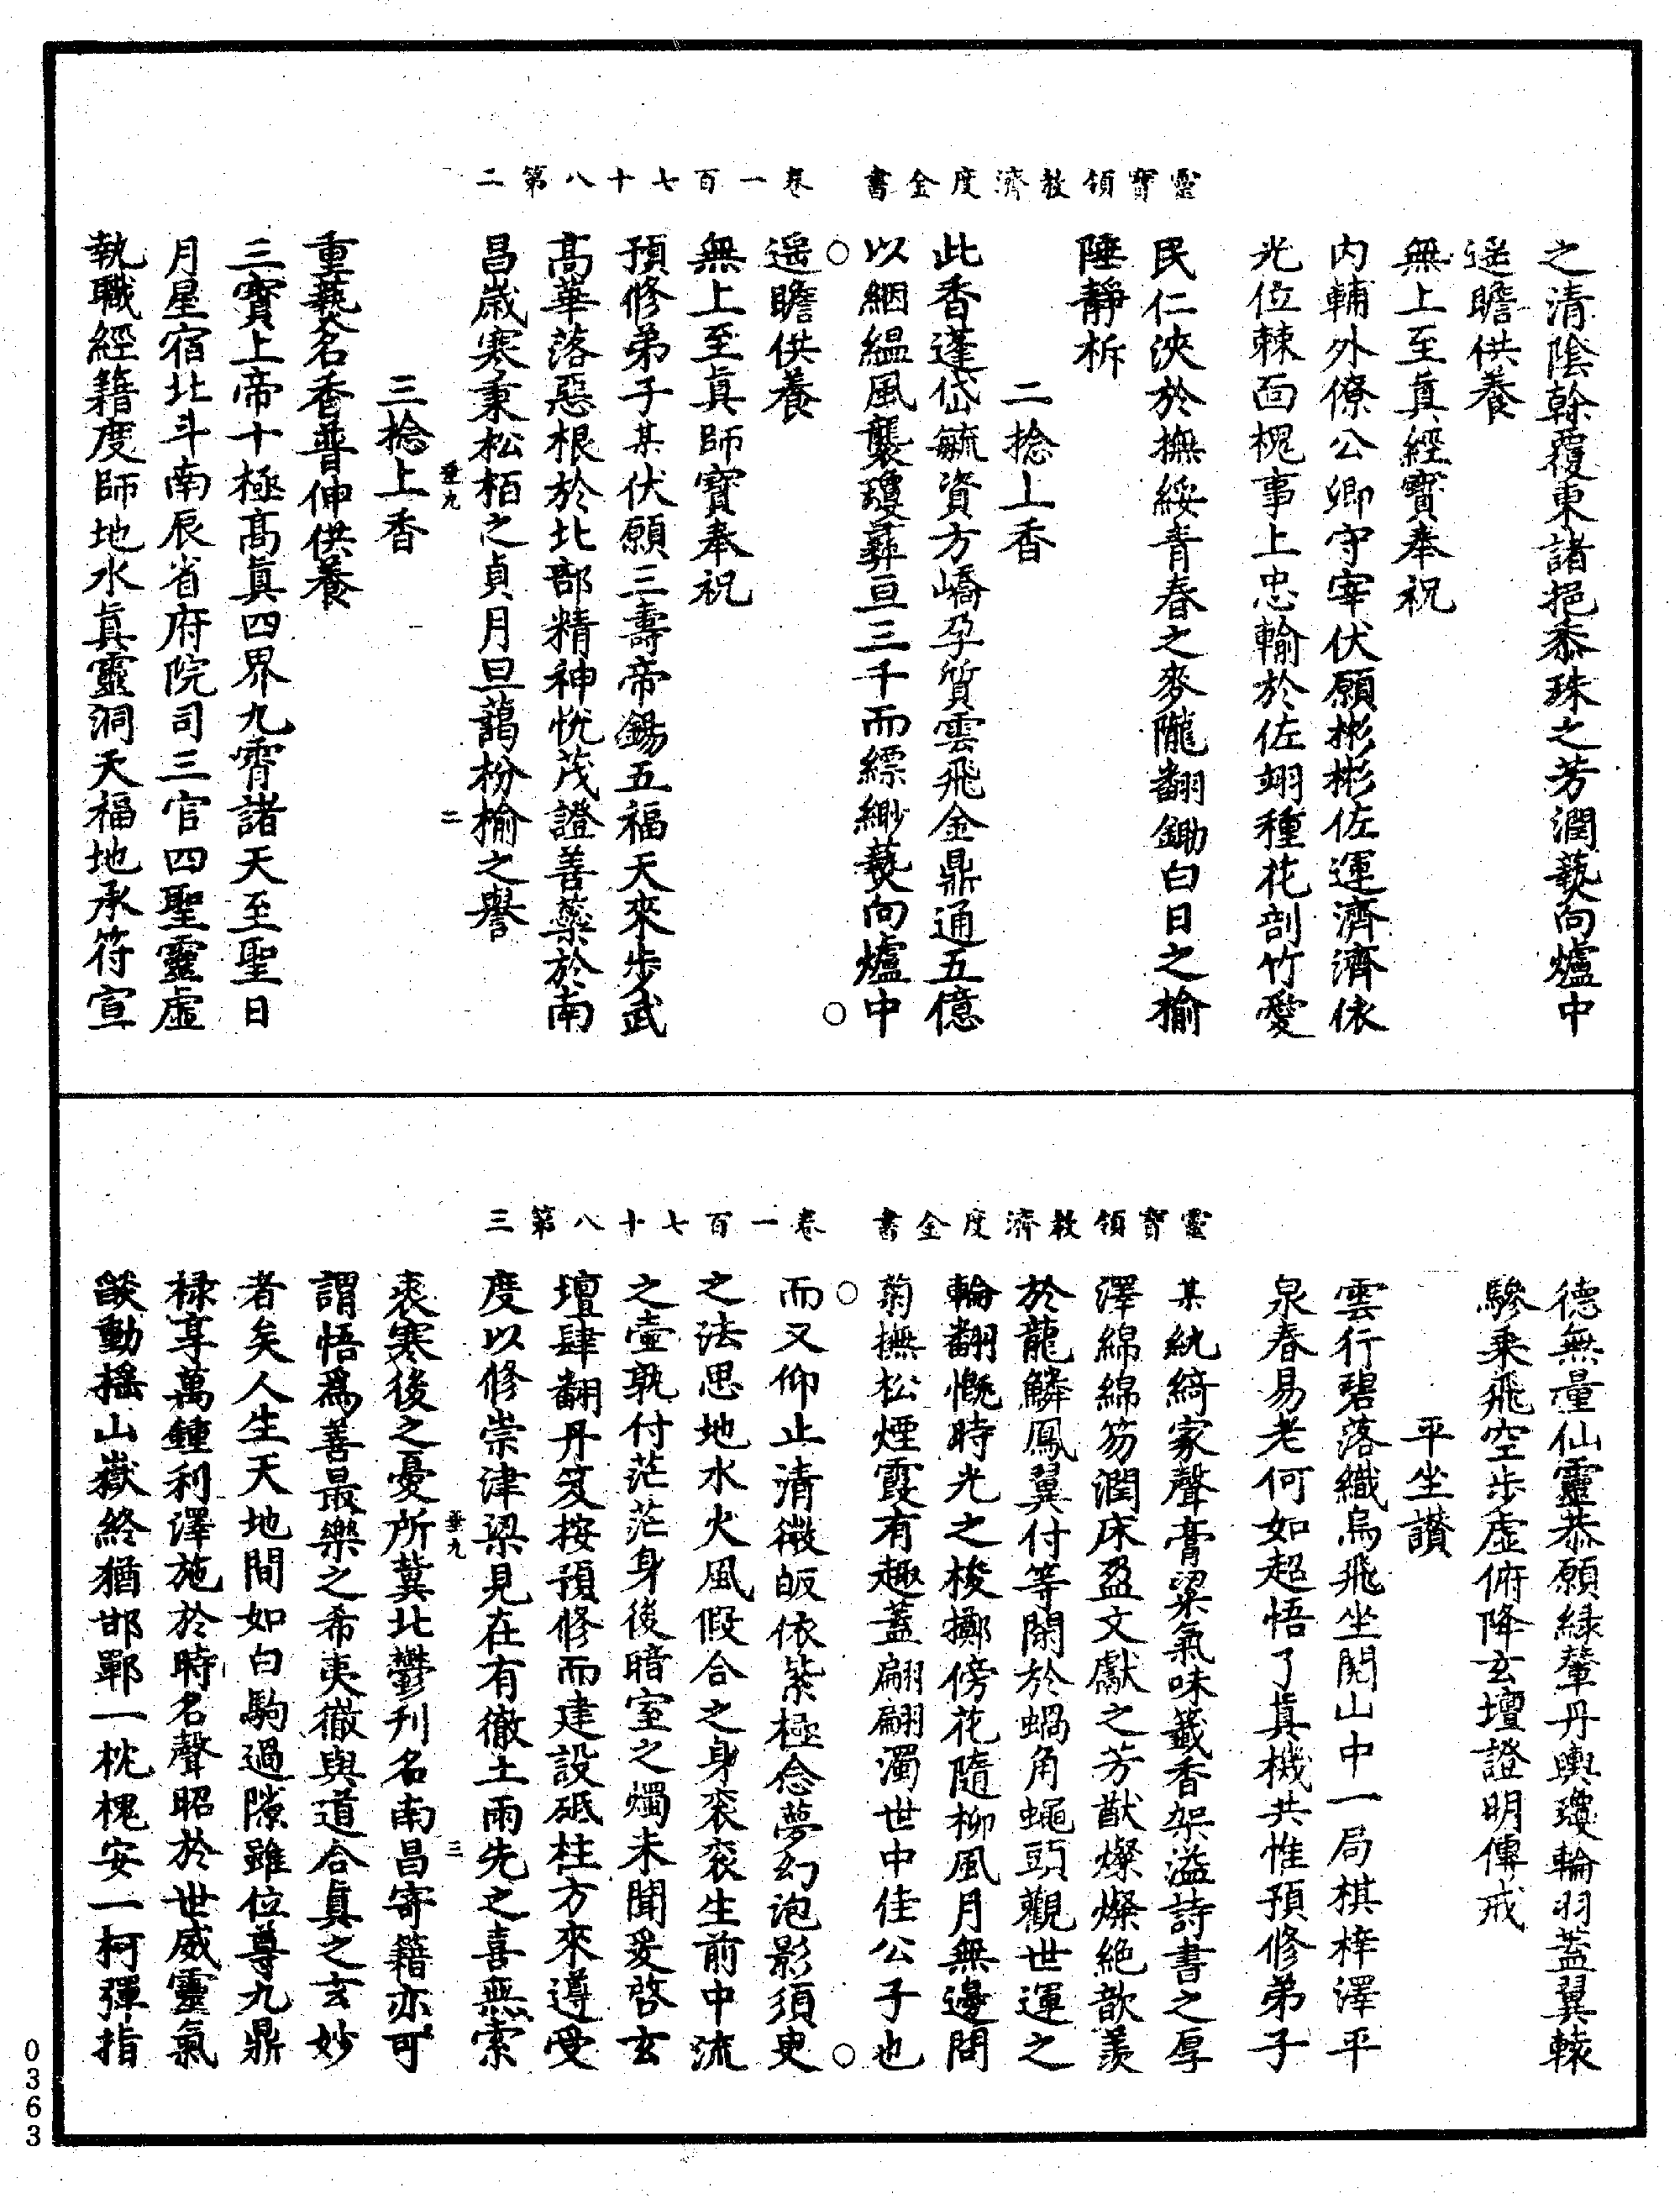 靈寶領教濟度金書 卷一百七十八第二
之清陰榦覆東諸挹黍珠之芳潤爇向爐中
遥瞻供養
無上至眞經寶奉祝
内輔外僚公卿守宰伏願彬彬佐運濟濟依
光位棘面槐事上忠輸於佐翊種花剖竹愛
民仁浹於撫綏青春之麥隴翻鋤白日之榆
陲靜柝
二捻上香
此香蓬岱毓資方嶠孕質雲飛金鼎通五億
以絪縕風襲瓊彝亘三千而縹緲爇向爐中
遥瞻供養
無上至眞師寶奉祝
預修弟子某伏願三壽帝錫五福天來步武
高華落惡根於北部精神恱茂證善藥於南
昌歲寒秉松栢之貞月旦藹枌榆之譽
垂九 二
三捻上香
重爇名香普伸供養
三寶上帝十極高眞四界九霄諸天至聖日
月星宿北斗南辰省府院司三官四聖靈虛
執職經籍度師地水眞靈洞天福地承符宣
靈寶領教濟度金書 卷一百七十八第三
德無量仙靈恭願緑輦丹輿瓊輪羽蓋翼轅
驂乘飛空步虛俯降玄壇證明傳戒
平坐讃
雲行碧落織烏飛坐閱山中一局棋梓澤平
泉春易老何如超悟了眞機共惟預修弟子
某紈綺家聲膏粱氣味籤香架溢詩書之厚
澤綿綿笏潤床盈文獻之芳猷燦燦絶歆羨
於龍鱗鳳翼付等閑於蝸角蠅頭觀世運之
輪翻慨時光之梭擲傍花隨柳風月無邊問
菊撫松煙霞有趣蓋翩翩濁世中佳公子也
而又仰止清微皈依紫極念夢幻泡影須臾
之法思地水火風假合之身衮衮生前中流
之壷孰付茫茫身後暗室之燭未聞爰啓玄
壇肆翻丹笈按預修而建設砥柱方來遵受
度以修崇津梁見在有徹土雨先之喜無索
垂九 三
裘寒後之憂所冀北酆刋名南昌寄籍亦可
謂悟爲善最樂之希夷徹與道合眞之玄妙
者矣人生天地間如白駒過隙雖位尊九鼎
禄享萬鍾利澤施於時名聲昭於世威靈氣
燄動揺山嶽終猶邯鄲一枕槐安一柯彈指
0363